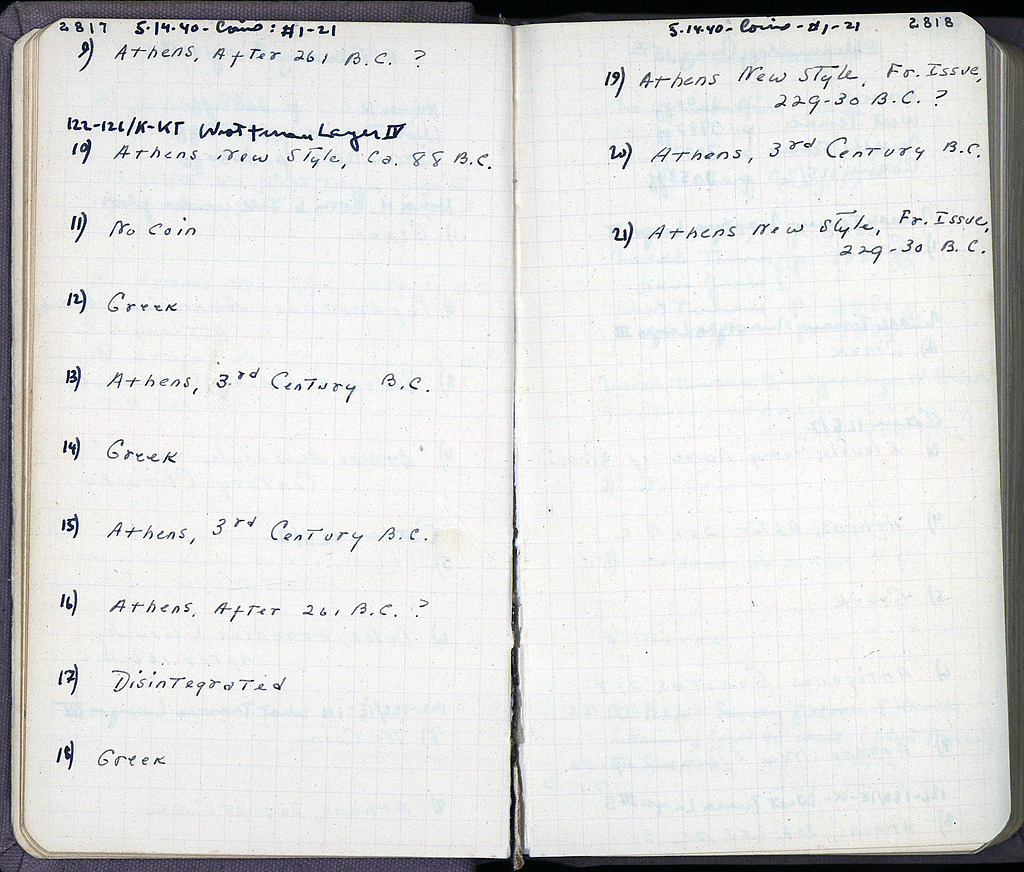 2817 5.14.40 - Coins: #1-21
9) Athens, After 261 B.C. ?
122-126/K-KT West Tunnel Layer IV
10) Athens New Style, Ca. 88 B.C.
11) No Coin
12) Greek
13) Athens, 3rd Century B.C.
14) Greek
15) Athens, 3rd Century B.C.
16) Athens, After 261 B.C. ?
17) Disintegrated
18) Greek
5.14.40 - Coins - #1-21 2818
19) Athens New Style, Fr. Issue,
229-30 B.C. ?
20) Athens, 3rd Century B.C.
21) Athens New Style, Fr. Issue,
229-30 B.C.